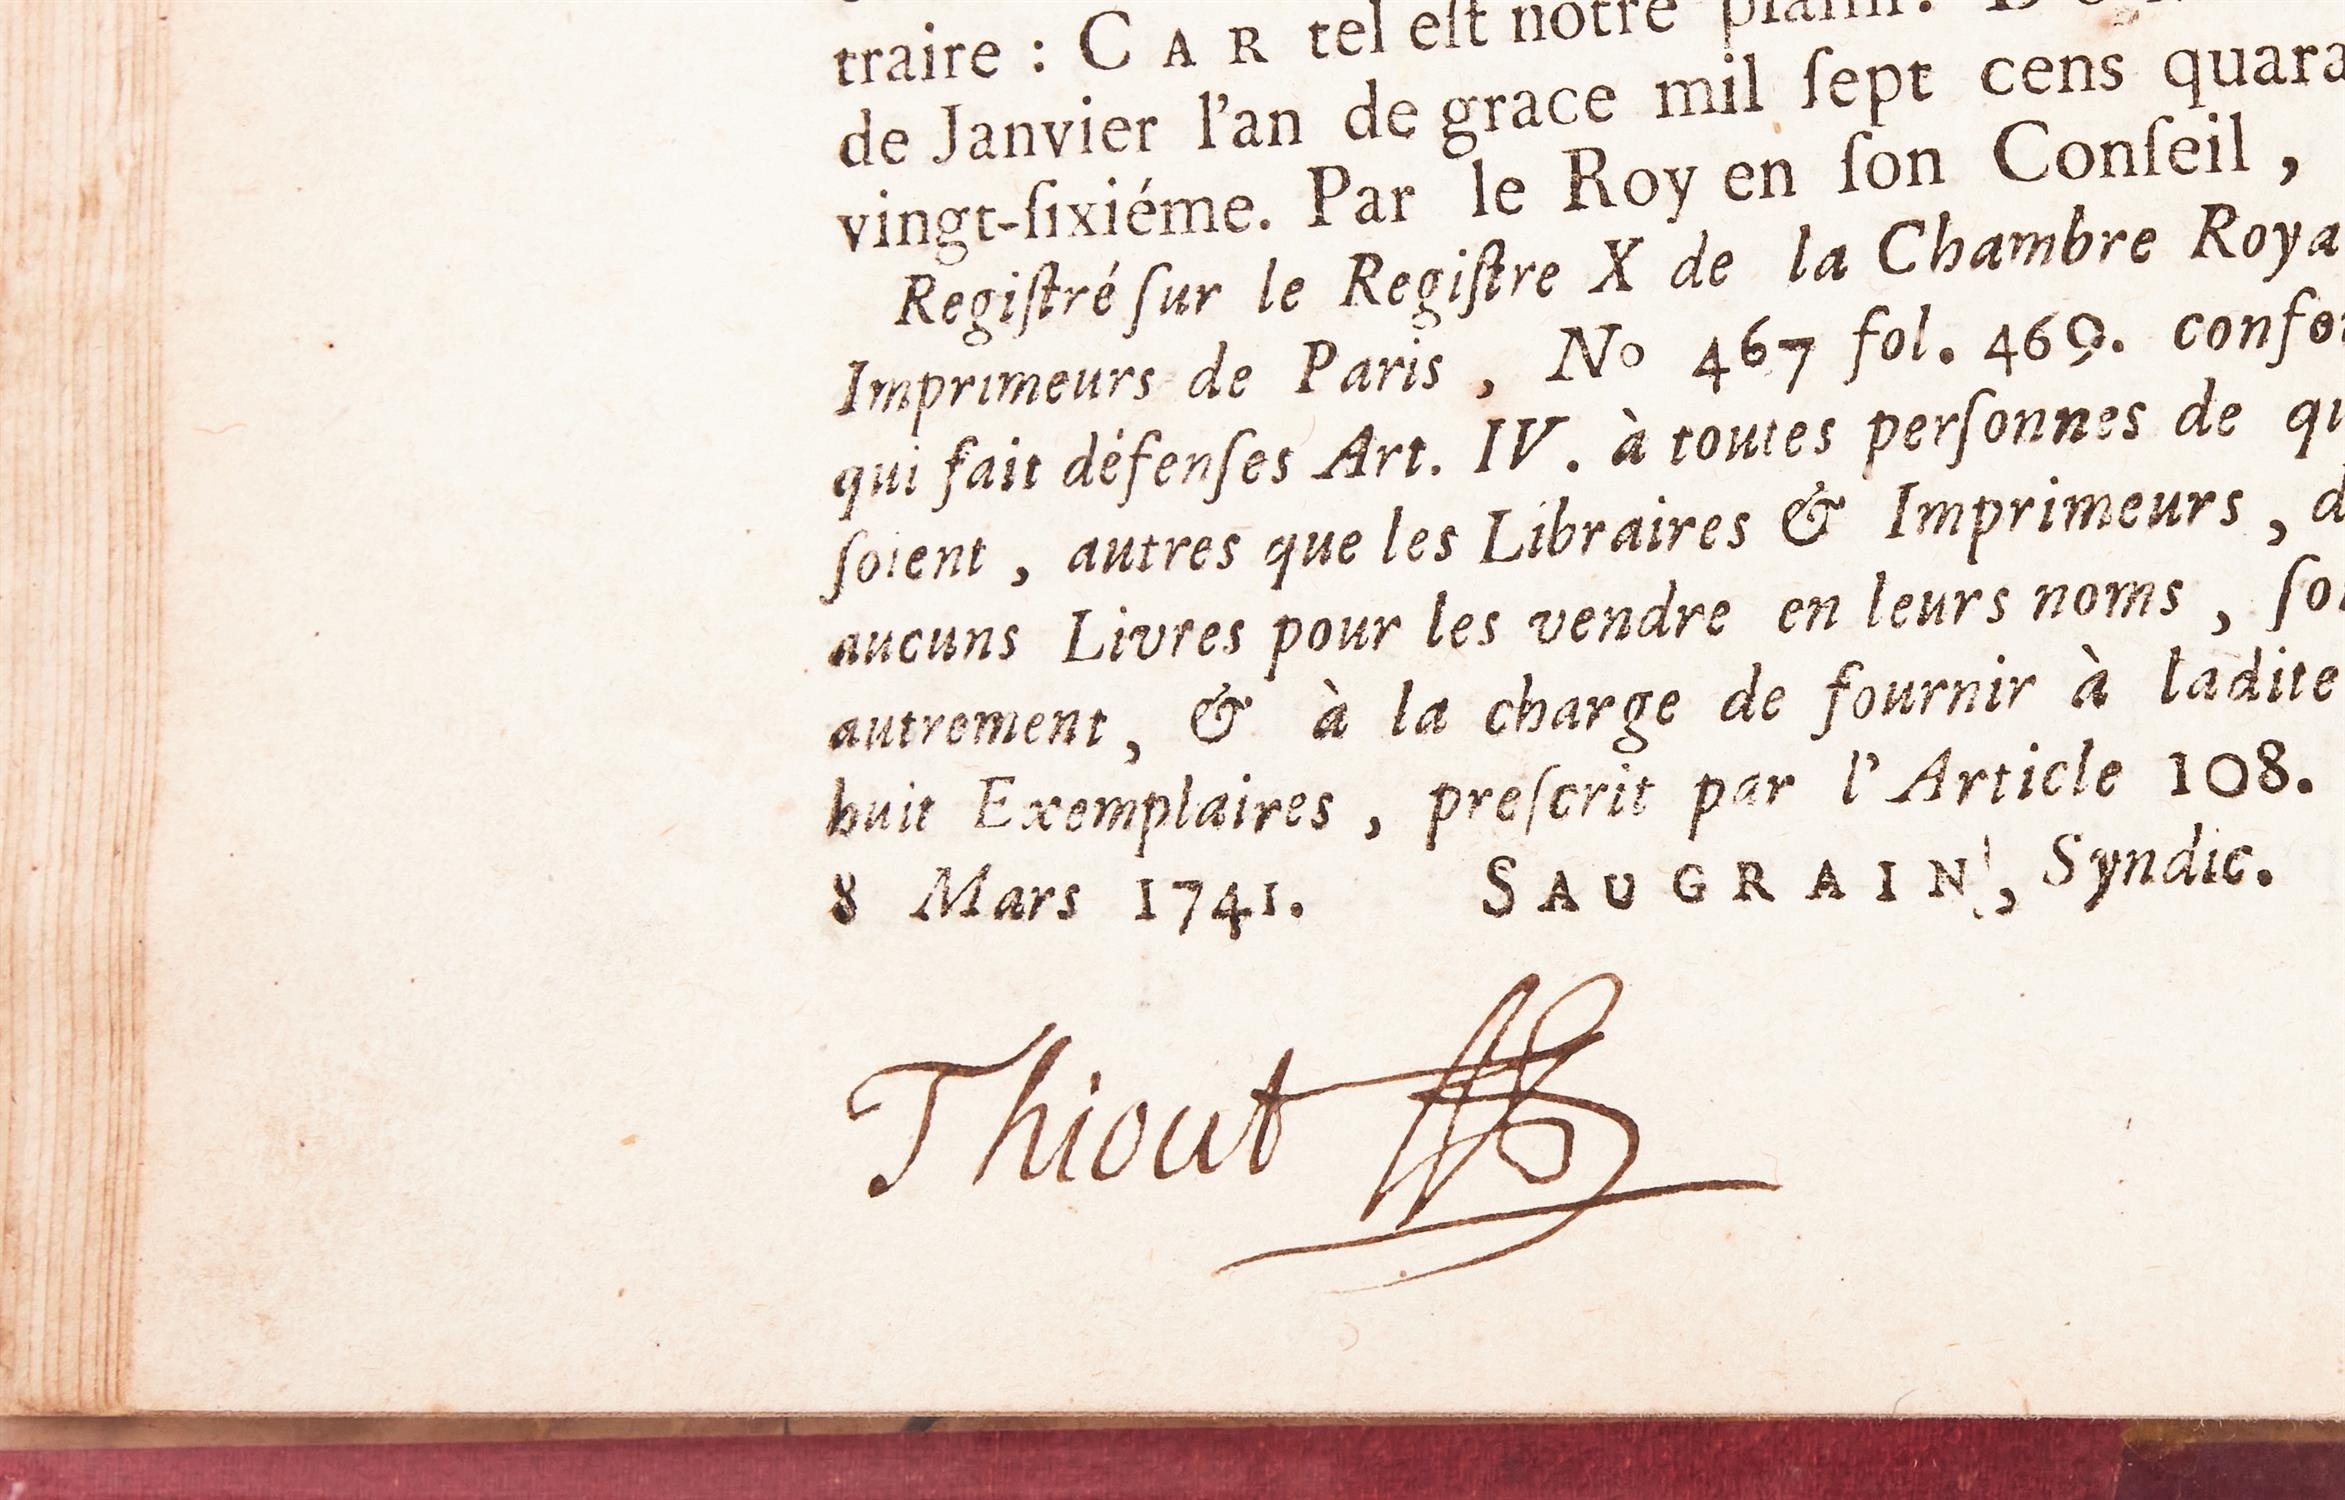 traire : CAR tel est notre plaisir.
de Janvier l'an de grace mil ſept cens quara
vingt-ſixiéme. Par le Roy en ſon Conſeil,
Regiſtré ſur le Regiſtre X de la Chambre Roya
Imprimeurs de Paris, No 467 fol. 469. confor
qui fait défenſes Art. IV. à toutes perſonnes de qu
ſoient, autres que les Libraires & Imprimeurs, d
aucuns Livres pour les vendre en leurs noms, ſoi
autrement, & à la charge de fournir à ladite
huit Exemplaires, preſcrit par l'Article 108.
8 Mars 1741. SAUGRAIN, Syndic.
Thiout